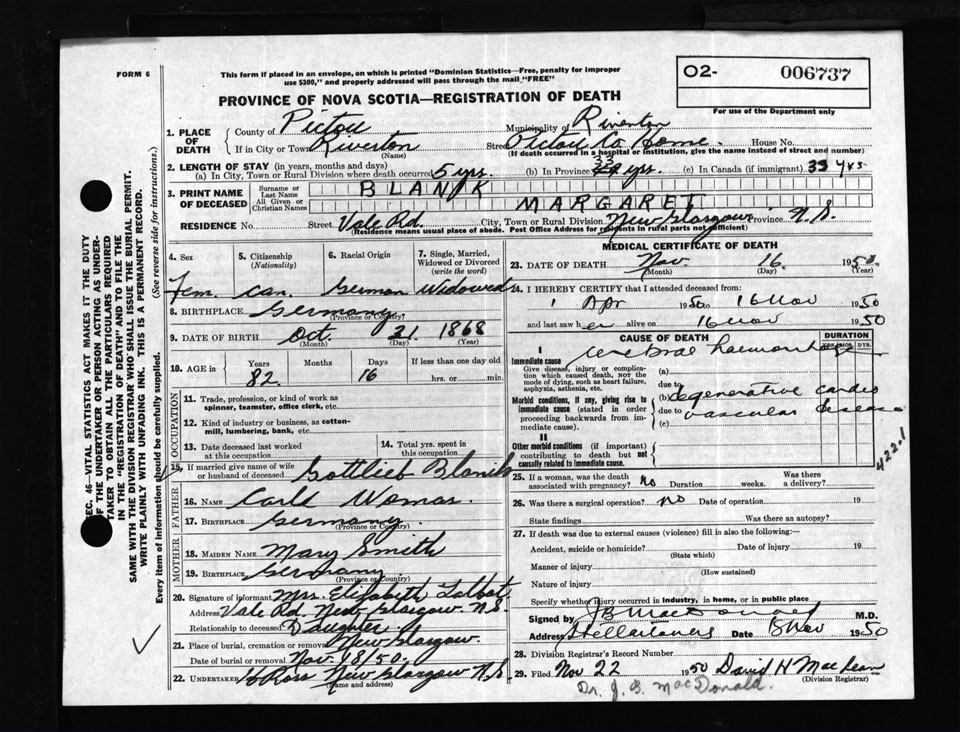 FORM 6
This form if placed in an envelope, on which is printed "Dominion Statistics—Free, penalty for improper
use $300," and properly addressed will pass through the mail "FREE"
O2- 006737
For use of the Department only
PROVINCE OF NOVA SCOTIA—REGISTRATION OF DEATH
1. PLACE OF DEATH
County of Pictou Municipality of Riverton
If in City or Town Riverton (Name) Street Pictou Co Home. House No.
(If death occurred in a hospital or institution, give the name instead of street and number)
2. LENGTH OF STAY (in years, months and days)
(a) In City, Town or Rural Division where death occurred 5 yrs. (b) In Province 33 yrs. (c) In Canada (if immigrant) 33 yrs
3. PRINT NAME OF DECEASED
Surname or Last Name BLANIK
All Given or Christian Names MARGARET
RESIDENCE No. Street Vale Rd. City, Town or Rural Division New Glasgow Province N.S.
(Residence means usual place of abode. Post Office Address for residents in rural parts not sufficient)
4. Sex
5. Citizenship (Nationality)
6. Racial Origin
7. Single, Married, Widowed or Divorced (write the word)
Fem. Can. German Widowed
8. BIRTHPLACE Germany
(Province or Country)
9. DATE OF BIRTH Oct. 31 1868
(Month) (Day) (Year)
10. AGE in Years Months Days If less than one day old
82 16 hrs. or min.
OCCUPATION
11. Trade, profession, or kind of work as
spinner, teamster, office clerk, etc.
12. Kind of industry or business, as cotton-
mill, lumbering, bank, etc.
13. Date deceased last worked at this occupation
14. Total yrs. spent in this occupation
15. If married give name of wife
or husband of deceased Gottlieb Blanik
FATHER
16. Name Carld Womas.
17. Birthplace Germany.
(Province or Country)
MOTHER
18. Maiden Name Mary Smith
19. Birthplace Germany
(Province or Country)
20. Signature of informant Mrs. Elizabeth Talbot
Address Vale Rd. New Glasgow N.S.
Relationship to deceased Daughter.
21. Place of burial, cremation or removal New Glasgow.
Date of burial or removal Nov. 18/50.
22. UNDERTAKER Ross New Glasgow N.S
(Name and address)
MEDICAL CERTIFICATE OF DEATH
23. DATE OF DEATH Nov. 16 1950
(Month) (Day) (Year)
24. I HEREBY CERTIFY that I attended deceased from:
1 Apr 1950 to 16 Nov 1950
and last saw her alive on 16 Nov 1950
CAUSE OF DEATH
DURATION
YRS. MOS. DYS.
I
Immediate cause cerebral haemorrhage
Give disease, injury or complica-
tion which caused death, not the
mode of dying, such as heart failure,
asphyxia, asthenia, etc.
(a)
due to
Morbid conditions, if any, giving rise to
immediate cause (stated in order
proceeding backwards from im-
mediate cause).
(b) degenerative cardio
due to vascular disease
(c)
422.1
II
Other morbid conditions (if important)
contributing to death but not
causally related to immediate cause.
25. If a woman, was the death
associated with pregnancy? No Duration weeks. Was there a delivery?
26. Was there a surgical operation? No Date of operation 19
State findings Was there an autopsy?
27. If death was due to external causes (violence) fill in also the following:—
Accident, suicide or homicide? Date of injury 19
(State which)
Manner of injury
(How sustained)
Nature of injury
Specify whether injury occurred in industry, in home, or in public place
Signed by JB MacDonald M.D.
Address Date 18 Nov 1950
28. Division Registrar's Record Number
29. Filed Nov 22 1950 David H MacLean
(Division Registrar)
Dr. J. B. MacDonald.
SEC. 46—VITAL STATISTICS ACT MAKES IT THE DUTY
OF THE UNDERTAKER OR PERSON ACTING AS UNDER-
TAKER TO OBTAIN ALL THE PARTICULARS REQUIRED
IN THE "REGISTRATION OF DEATH" AND TO FILE THE
SAME WITH THE DIVISION REGISTRAR WHO SHALL ISSUE THE BURIAL PERMIT.
WRITE PLAINLY WITH UNFADING INK. THIS IS A PERMANENT RECORD.
Every item of information should be carefully supplied. (See reverse side for instructions.)